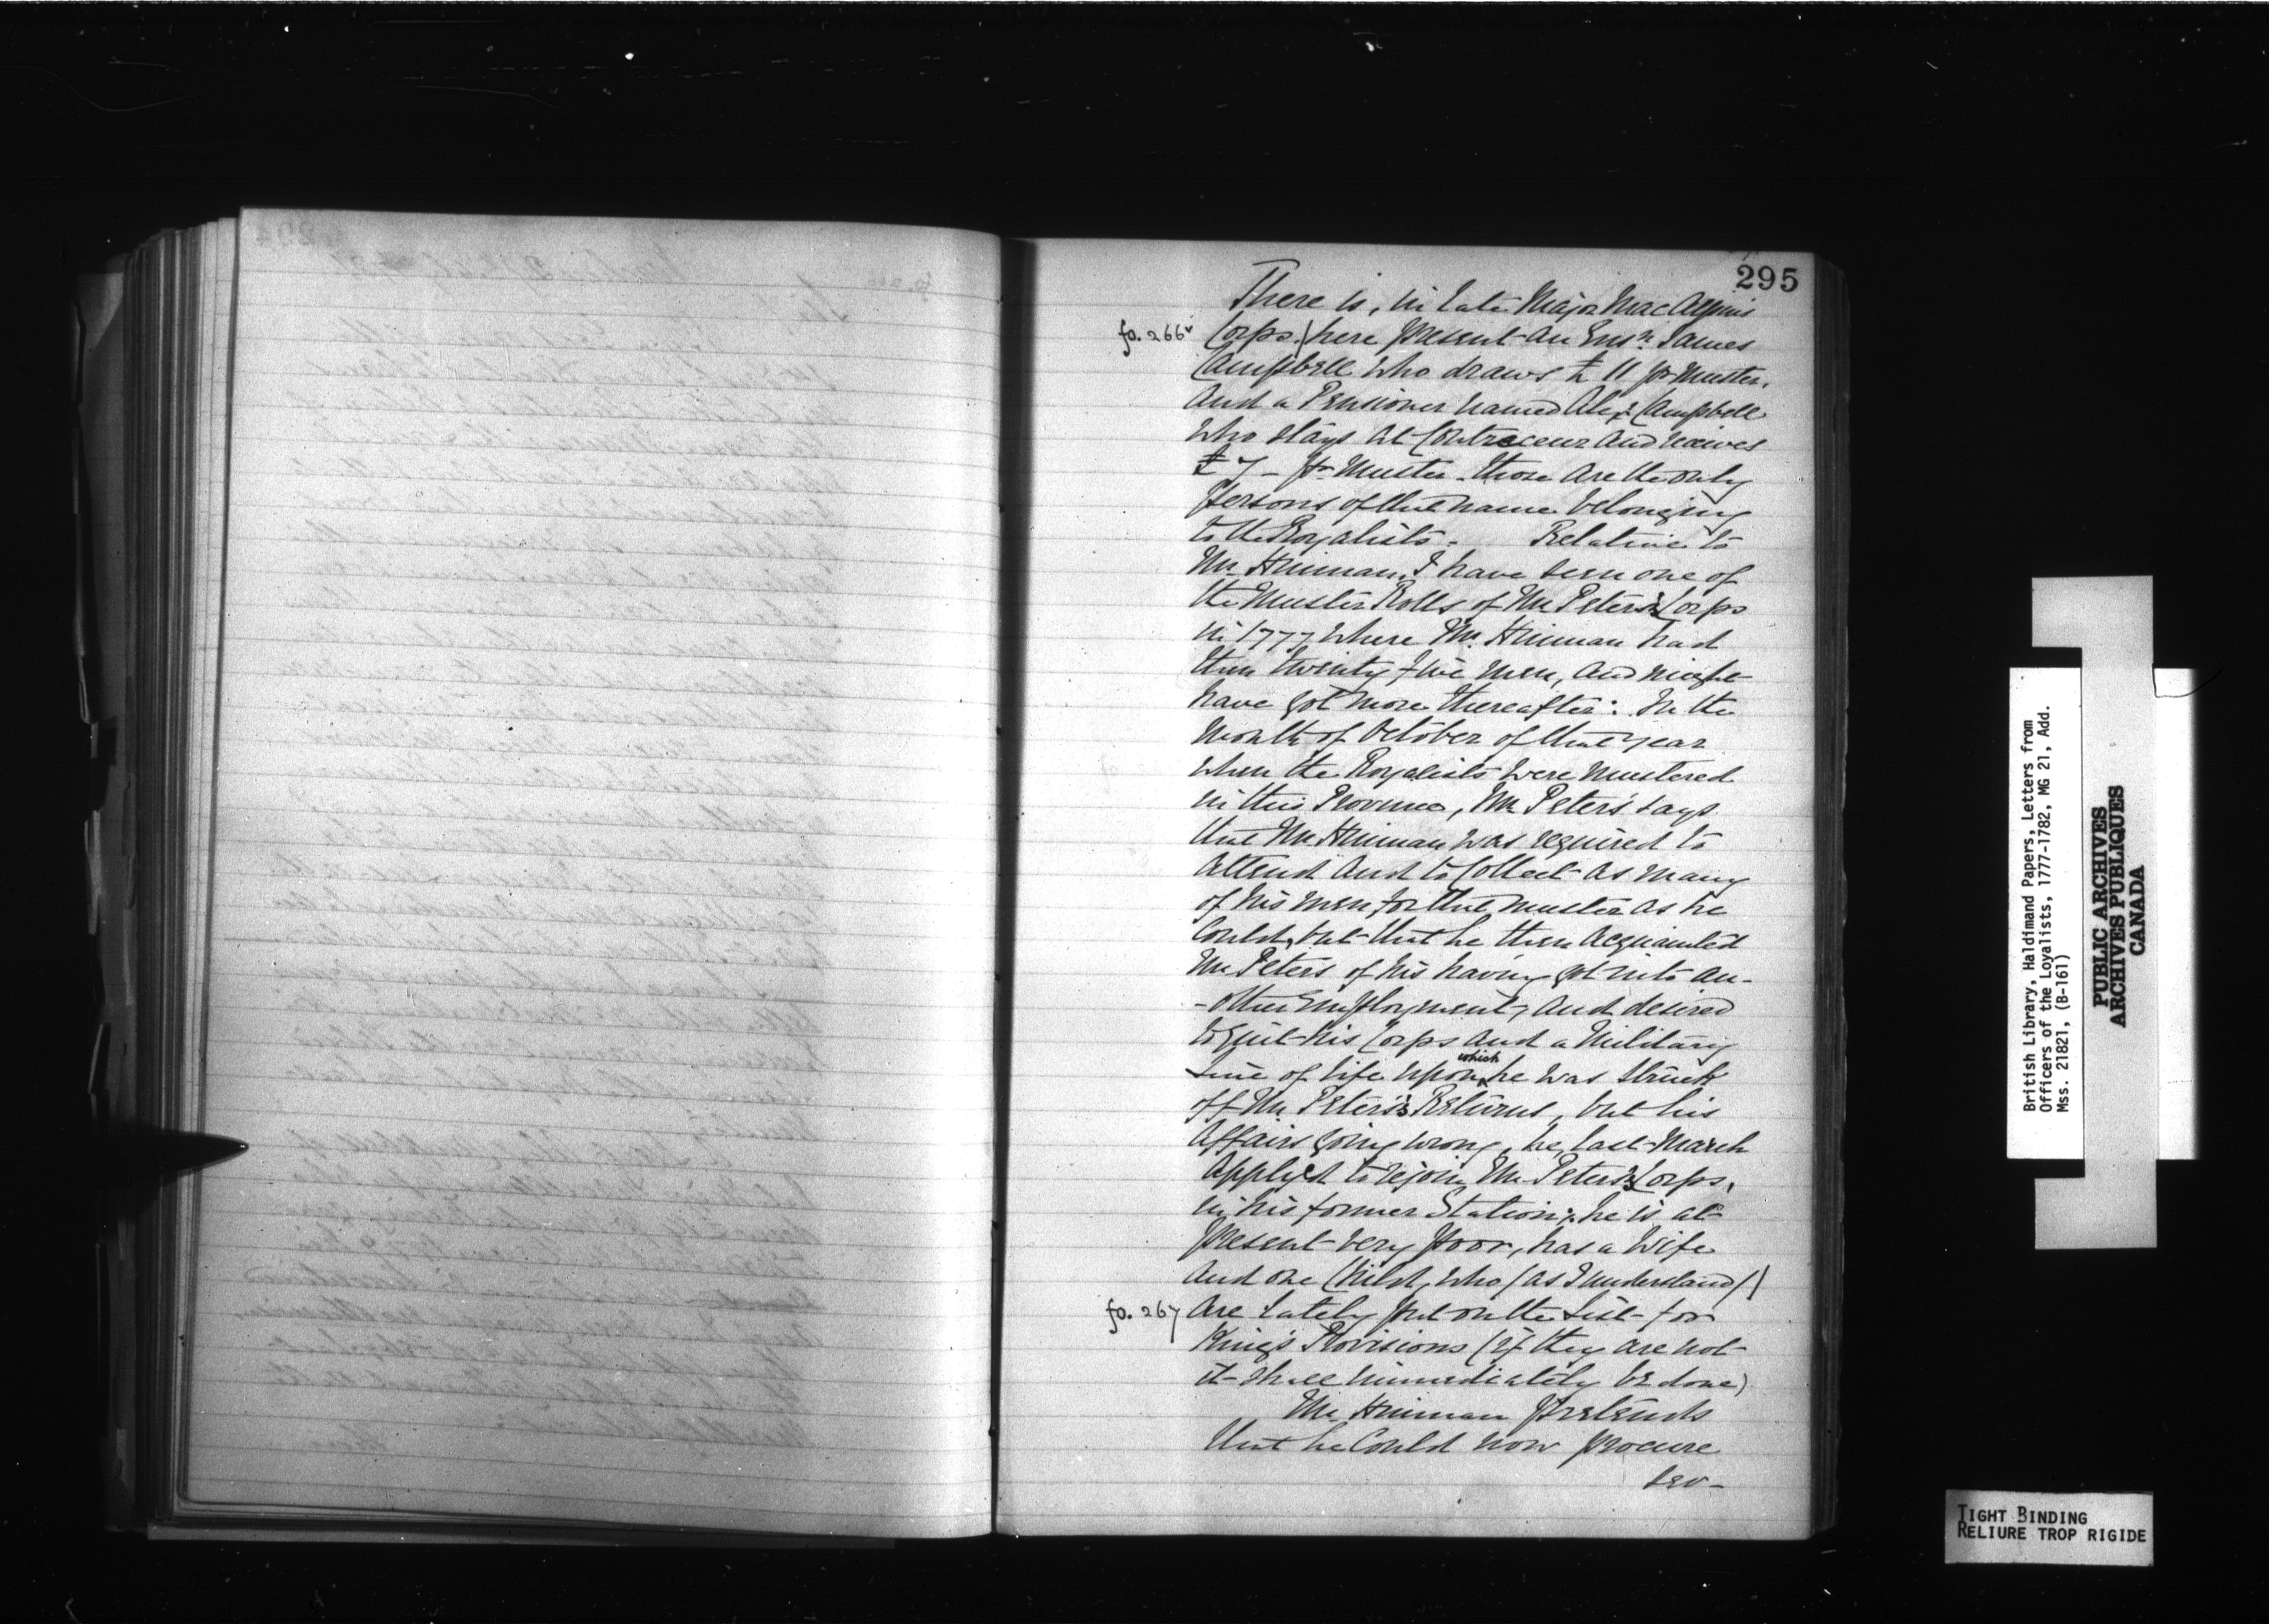 295
There is, in late Major MacAlpin's
fo. 266v Corps,/ here present an Ensn. James
Campbell who draws £ 11 pr muster,
And a Pensioner named Alexr. Campbell
who stays at Contreceur and receives
£ 7 - pr Muster - those are the only
persons of that name belonging
to the Royalists. Relative to
Mr. Hinman, I have seen one of
the Muster Rolls of Mr. Peters's Corps
in 1777 where Mr. Hinman had
then twenty five men, and might
have got more thereafter: In the
Month of October of that year
when the Royalists were mustered
in this Province, Mr. Peters says
that Mr. Hinman was required to
attend and to Collect as many
of his men for that muster as he
Could, but that he then Acquainted
Mr. Peters of his having got into an-
-other Employment, and desired
to quit his Corps and a Military
Line of life upon which he was struck
off Mr. Peters's Returns, but his
Affairs going wrong, he, last March
Applyed to rejoin Mr. Peters's Corps,
in his former Station; he is at
present very poor, has a Wife
and one Child, who (as I understand)/
fo. 267 Are lately put on the List for
King's Provisions (if they are not
it shall immediately be done)
Mr. Hinman pretends
that he Could now procure
sev-
British Library, Haldimand Papers, Letters from
Officers of the Loyalists, 1777-1782, MG 21, Add.
Mss. 21821, (B-161)
PUBLIC ARCHIVES
ARCHIVES PUBLIQUES
CANADA
TIGHT BINDING
RELIURE TROP RIGIDE